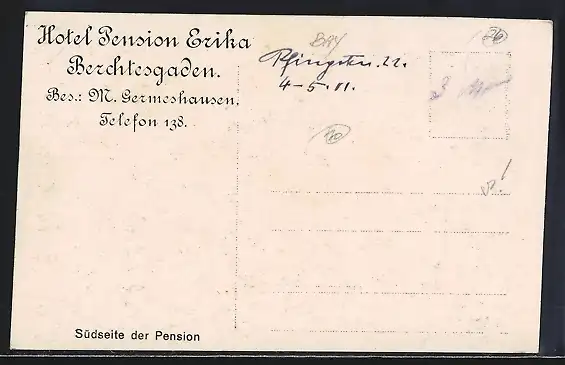 Hotel Pension Erika
Berchtesgaden.
Bes.: M. Germeshausen.
Telefon 138.
BAY
Pfingsten 22.
4-5. VI.
20
20
Südseite der Pension